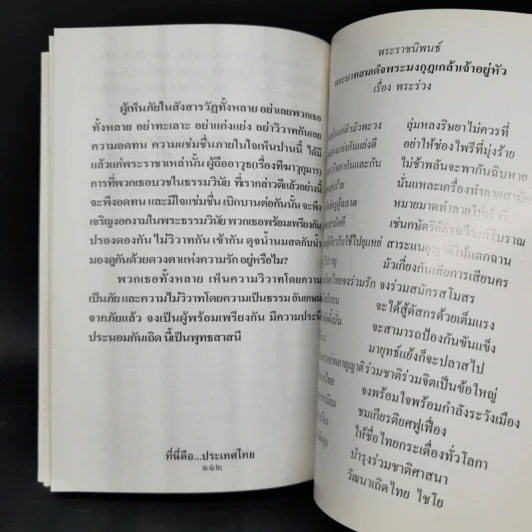 ผู้เห็นภัยในสังสารวัฏทั้งหลาย อย่าเลยพวกเธอ
ทั้งหลาย อย่าทะเลาะ อย่าแก่งแย่ง อย่าวิวาทกันเลย
ความอดทน ความแช่มชื่นภายในใจเห็นปานนี้ ได้มี
แล้วแก่พระราชาเหล่านั้น ผู้ถืออาวุธ(เรื่องทีฆาวุกุมาร)
การที่พวกเธอบวชในธรรมวินัย ที่เรากล่าวดีแล้วอย่างนี้
จะพึงอดทน และมีใจแช่มชื่น เบิกบานต่อกันนั้น จะพึง
เจริญงอกงามในพระธรรมวินัย พวกเธอพร้อมเพรียงกัน
ปรองดองกัน ไม่วิวาทกัน เข้ากัน ดุจน้ำนมสดกับน้ำ
มองดูกันด้วยดวงตาแห่งความรัก อยู่หรือไม่?
พวกเธอทั้งหลาย เห็นความวิวาทโดยความ
เป็นภัย และความไม่วิวาทโดยความเป็นธรรม อันเกษม
จากภัยแล้ว จงเป็นผู้พร้อมเพรียงกัน มีความประนี
ประนอมกันเถิด นี้เป็นพุทธสาสนี
ที่นี่คือ...ประเทศไทย
๑๑๒
พระราชนิพนธ์
พระบาทสมเด็จพระมงกุฎเกล้าเจ้าอยู่หัว
เรื่อง พระร่วง
ลุ่มหลงริษยาไม่ควรที่
อย่าให้ช่องไพรีที่มุ่งร้าย
ไม่ช้าพลันจะพากันฉิบหาย
นั่นแหละเครื่องทำลายสามัคคี
หมายมาดทำลายให้เร็วรี่
เช่นกษัตริย์ลิจฉวีวงศ์โบราณ
สาระแนยุญาติให้แตกฉาน
มัวเกี่ยงกันเสียการเสียนคร
ไทยจงร่วมรัก จงร่วมสมัครสโมสร
จะได้สู้ดัสกรด้วยเต็มแรง
จะสามารถป้องกันขันแข็ง
มายุทธ์แย้งก็จะปลาสไป
ญาติร่วมชาติร่วมจิตเป็นข้อใหญ่
จงพร้อมใจพร้อมกำลังระวังเมือง
ชมเกียรติยศฟูเฟื่อง
ให้ชื่อไทยกระเดื่องทั่วโลกา
บำรุงร่วมชาติศาสนา
วัฒนาเถิดไทย ไชโย